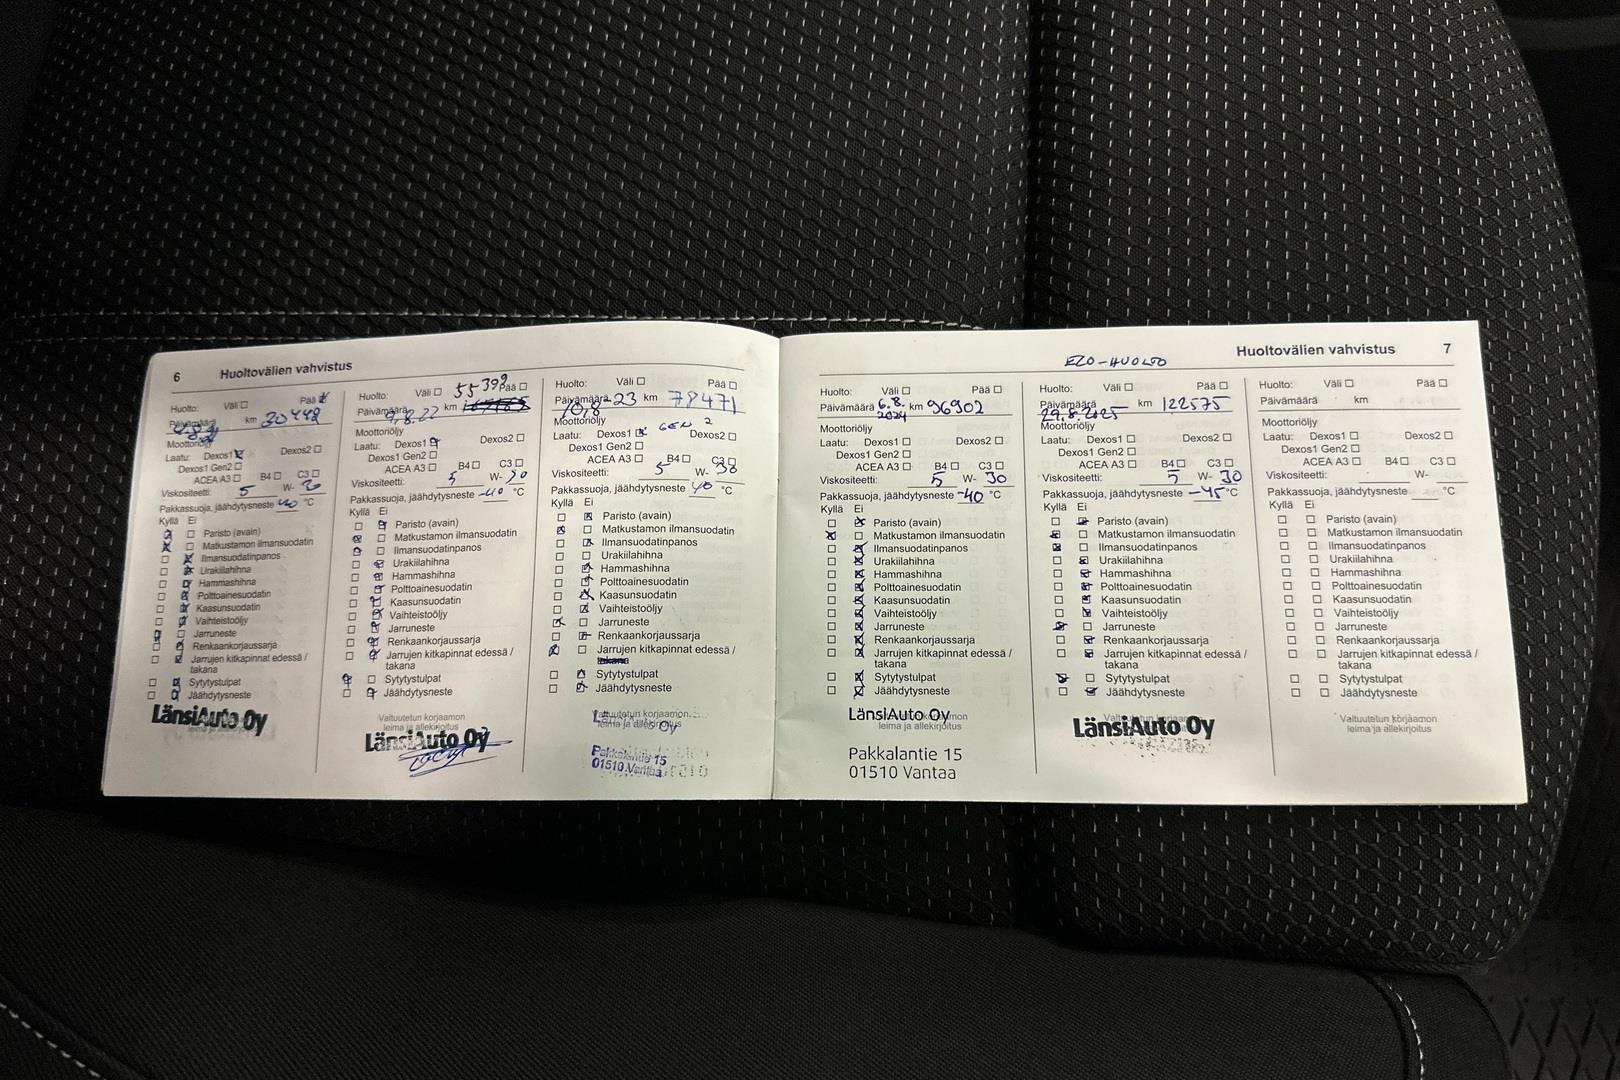 6 Huoltovälien vahvistus
Huolto: Väli Pää
Päivämäärä km 30448
Moottoriöljy
Laatu: Dexos1 Dexos2
Dexos1 Gen2
ACEA A3 B4 C3
Viskositeetti: 5 W-
Pakkassuoja, jäähdytysneste -40 °C
Kyllä Ei
Paristo (avain)
Matkustamon ilmansuodatin
Ilmansuodatinpanos
Urakiilahihna
Hammashihna
Polttoainesuodatin
Kaasunsuodatin
Vaihteistoöljy
Jarruneste
Renkaankorjaussarja
Jarrujen kitkapinnat edessä /
takana
Sytytystulpat
Jäähdytysneste
LänsiAuto Oy
Huolto: Väli 55399 Pää
Päivämäärä 9.8.22 km
Moottoriöljy
Laatu: Dexos1 Dexos2
Dexos1 Gen2
ACEA A3 B4 C3
Viskositeetti: 5 W- 30
Pakkassuoja, jäähdytysneste -40 °C
Kyllä Ei
Paristo (avain)
Matkustamon ilmansuodatin
Ilmansuodatinpanos
Urakiilahihna
Hammashihna
Polttoainesuodatin
Kaasunsuodatin
Vaihteistoöljy
Jarruneste
Renkaankorjaussarja
Jarrujen kitkapinnat edessä /
takana
Sytytystulpat
Jäähdytysneste
Valtuutetun korjaamon
LänsiAuto Oy
Huolto: Väli Pää
Päivämäärä 10.8-23 km 79471
Moottoriöljy
Laatu: Dexos1 GEN 2 Dexos2
Dexos1 Gen2
ACEA A3 B4 C3
Viskositeetti: 5 W- 30
Pakkassuoja, jäähdytysneste 40 °C
Kyllä Ei
Paristo (avain)
Matkustamon ilmansuodatin
Ilmansuodatinpanos
Urakiilahihna
Hammashihna
Polttoainesuodatin
Kaasunsuodatin
Vaihteistoöljy
Jarruneste
Renkaankorjaussarja
Jarrujen kitkapinnat edessä /
takana
Sytytystulpat
Jäähdytysneste
Valtuutetun korjaamon
leima ja allekirjoitus
Pakkalantie 15
01510 Vantaa
EZO-HUOLTO
Huoltovälien vahvistus 7
Huolto: Väli Pää
Päivämäärä 6.8.2024 km 96902
Moottoriöljy
Laatu: Dexos1 Dexos2
Dexos1 Gen2
ACEA A3 B4 C3
Viskositeetti: 5 W- 30
Pakkassuoja, jäähdytysneste -40 °C
Kyllä Ei
Paristo (avain)
Matkustamon ilmansuodatin
Ilmansuodatinpanos
Urakiilahihna
Hammashihna
Polttoainesuodatin
Kaasunsuodatin
Vaihteistoöljy
Jarruneste
Renkaankorjaussarja
Jarrujen kitkapinnat edessä /
takana
Sytytystulpat
Jäähdytysneste
Valtuutetun korjaamon
leima ja allekirjoitus
LänsiAuto Oy
Pakkalantie 15
01510 Vantaa
Huolto: Väli Pää
Päivämäärä 29.8.2025 km 122575
Moottoriöljy
Laatu: Dexos1 Dexos2
Dexos1 Gen2
ACEA A3 B4 C3
Viskositeetti: 5 W- 30
Pakkassuoja, jäähdytysneste -45 °C
Kyllä Ei
Paristo (avain)
Matkustamon ilmansuodatin
Ilmansuodatinpanos
Urakiilahihna
Hammashihna
Polttoainesuodatin
Kaasunsuodatin
Vaihteistoöljy
Jarruneste
Renkaankorjaussarja
Jarrujen kitkapinnat edessä /
takana
Sytytystulpat
Jäähdytysneste
LänsiAuto Oy
Huolto: Väli Pää
Päivämäärä km
Moottoriöljy
Laatu: Dexos1 Dexos2
Dexos1 Gen2
ACEA A3 B4 C3
Viskositeetti: W-
Pakkassuoja, jäähdytysneste °C
Kyllä Ei
Paristo (avain)
Matkustamon ilmansuodatin
Ilmansuodatinpanos
Urakiilahihna
Hammashihna
Polttoainesuodatin
Kaasunsuodatin
Vaihteistoöljy
Jarruneste
Renkaankorjaussarja
Jarrujen kitkapinnat edessä /
takana
Sytytystulpat
Jäähdytysneste
Valtuutetun korjaamon
leima ja allekirjoitus